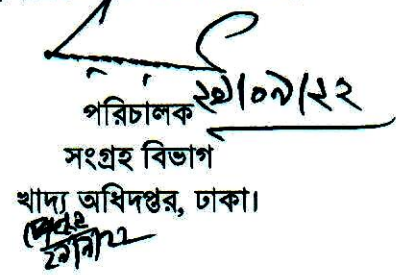 ২৯/০৯/২২
পরিচালক
সংগ্রহ বিভাগ
খাদ্য অধিদপ্তর, ঢাকা।
২৯/৯/২২